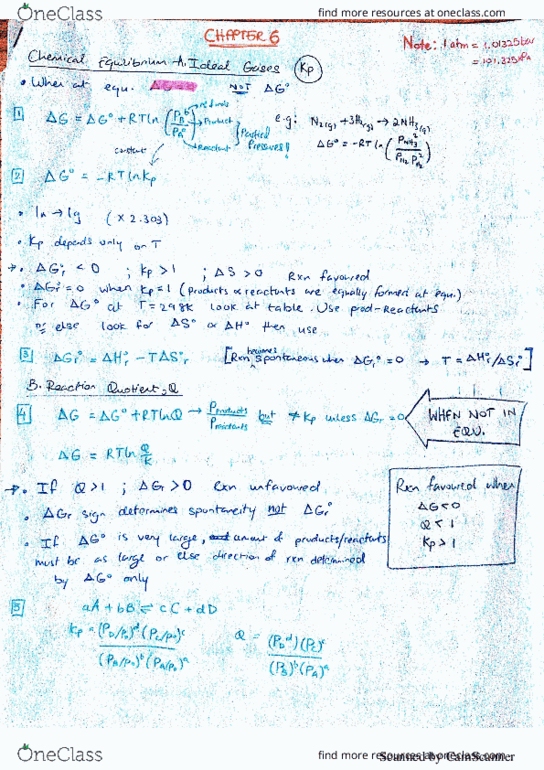 OneClass
find more resources at oneclass.com
CHAPTER 6
Note: 1 atm = 1.01325 bar
= 101.325kPa
Chemical Equilibrium A. Ideal Gases (Kp)
• When at equ. ΔG = 0 NOT ΔG°
1 ΔG = ΔG° + RT ln (P_B^b / P_A^a) Product Reactant } Partial Pressures!
e.g: N₂(g) + 3H₂(g) → 2NH₃(g)
ΔG° = -RT ln
constant
2 ΔG° = -RT ln Kp
• ln → lg (× 2.303)
• Kp depends only on T
→ • ΔG°r < 0 ; Kp > 1 ; ΔS > 0 Rxn favoured
• ΔG°r = 0 when Kp = 1 (products & reactants are equally formed at equ.)
• For ΔG° at T = 298K look at table. Use prod-Reactants
or else look for ΔS° or ΔH° then use
3 ΔG°r = ΔH°r - TΔS°r [Rxn becomes spontaneous when ΔG°r = 0 → T = ΔH°r/ΔS°r]
B. Reaction Quotient, Q
4 ΔG = ΔG° + RT ln Q → Pproducts / Preactants but ≠ Kp unless ΔGr = 0
WHEN NOT IN
EQU.
ΔG = RT ln Q/K
→ • If Q > 1 ; ΔGr > 0 Rxn unfavoured
• ΔGr sign determines spontaneity not ΔG°r
• If ΔG° is very large, amount of products/reactants
must be as large or else direction of rxn determined
by ΔG° only
Rxn favoured when
ΔG < 0
Q < 1
Kp > 1
5 aA + bB ⇌ cC + dD
Kp = (P_D/P°)^d (P_C/P°)^c / (P_B/P°)^b (P_A/P°)^a
Q = (P_D^d)(P_C)^c / (P_B)^b (P_A)^a
OneClass
find more resources at oneclass.com
Scanned by CamScanner